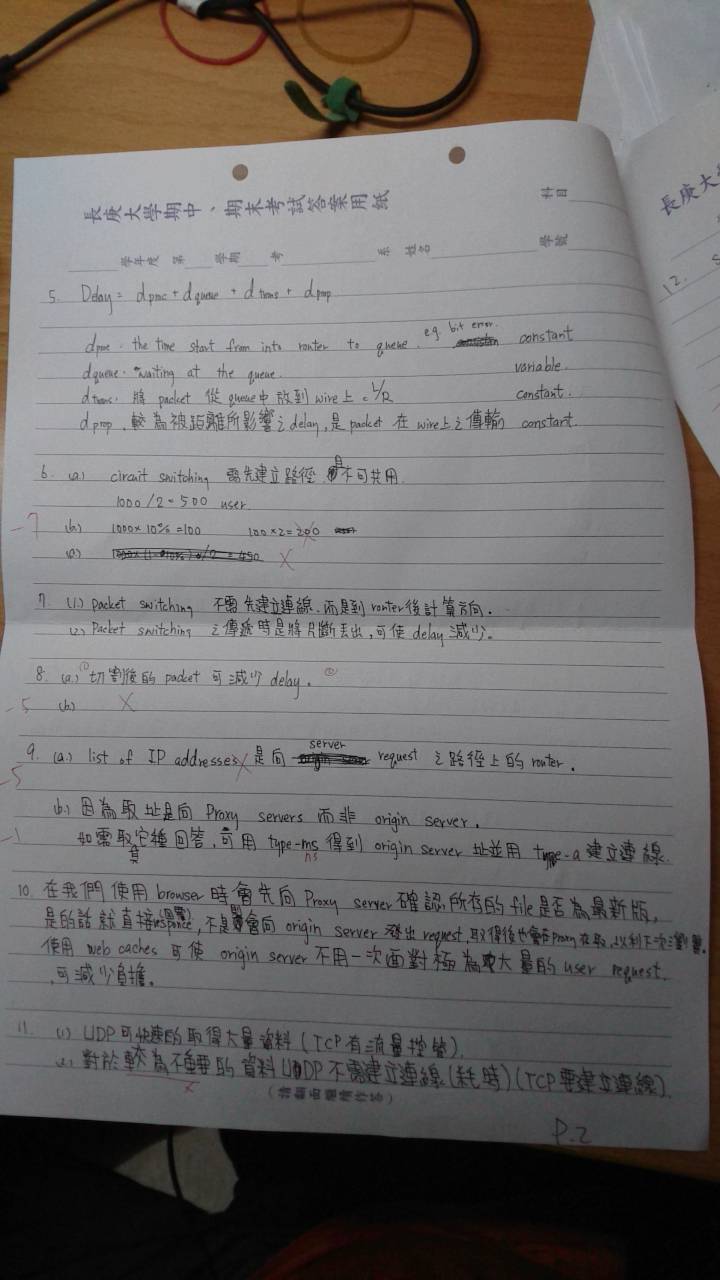 長庚大學期中、期末考試答案用紙
科目
學年度 第 學期 考 系 姓名 學號
5. Delay = d proc + d queue + d trans + d prop
d proc. the time start from into router to queue. e.g. bit error. constant
d queue. waiting at the queue. variable.
d trans. 將 packet 從 queue中 放到 wire上 = L/R constant.
d prop. 較為被距離所影響之delay, 是 packet 在 wire上之傳輸 constant.
6. (a) circuit switching 需先建立路徑, 是不可共用
1000/2 = 500 user
-7
(b) 1000×10% = 100 100×2=200
(c)
7. (1) packet switching 不需先建立連線, 而是到 router後計算方向.
(2) Packet switching 之傳遞時是將片斷丟出, 可使 delay 減少。
8. (a) ① 切割後的 packet 可減少 delay. ②
-5 (b)
9. (a) list of IP addresses 是向 server request 之路徑上的 router.
-5
(b) 因為取址是向 Proxy servers 而非 origin server.
-1 如需取其它種回答, 可用 type-ms 得到 origin server 址並用 type-a 建立連線.
ns
10. 在我們使用 browser 時會先向 Proxy server 確認, 所存的 file 是否為最新版,
是的話就直接 responce, 不是則會向 origin server 發出 request, 取得後也會在 Proxy 存取, 以利下次瀏覽.
使用 web caches 可使 origin server 不用一次面對極為大量的 user request.
可減少負擔。
11. (1) UDP 可快速的取得大量資料 (TCP 有流量控管).
(2) 對於較為不重要的資料 UDP 不需建立連線 (耗時) (TCP要建立連線).
(請翻面繼續作答)
P.2
長庚大學
12.